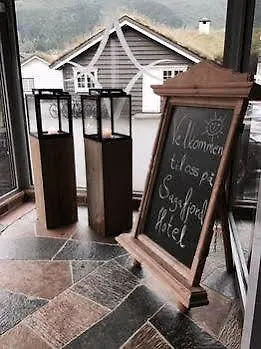 Velkommen
til oss på
Sagafjord
Hotel